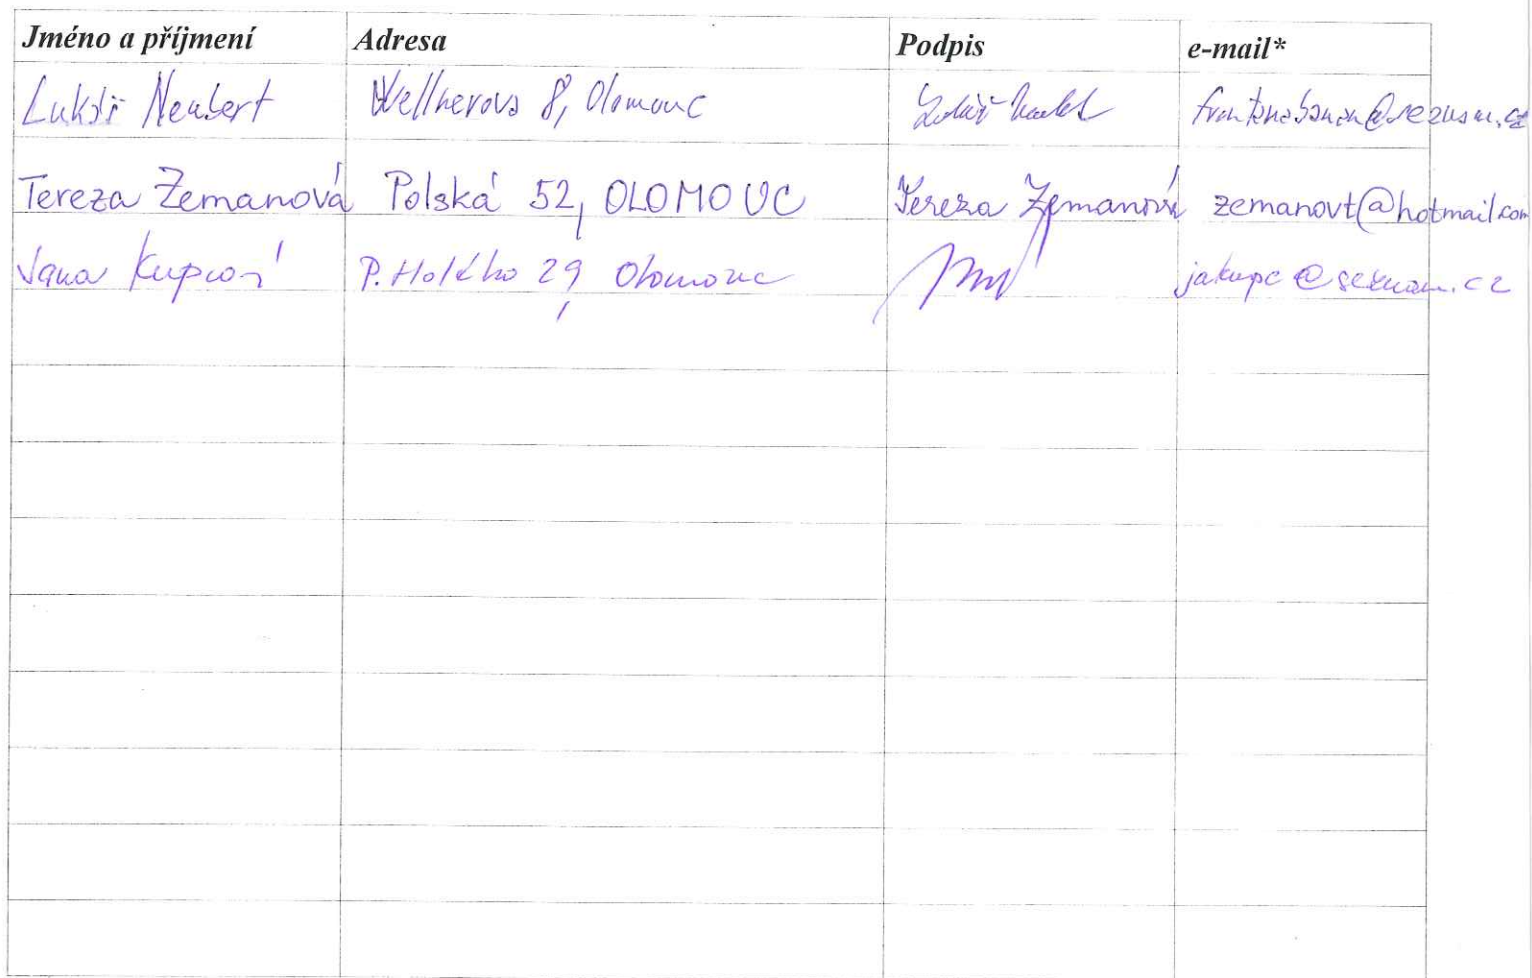 Jméno a příjmení Adresa Podpis e-mail*
Lukáš Neubert Wellnerova 8, Olomouc
Tereza Zemanová Polská 52, OLOMOUC Tereza Zemanová zemanovt@hotmail.com
Jana P. Holého 29, Olomouc jakupc@seznam.cz